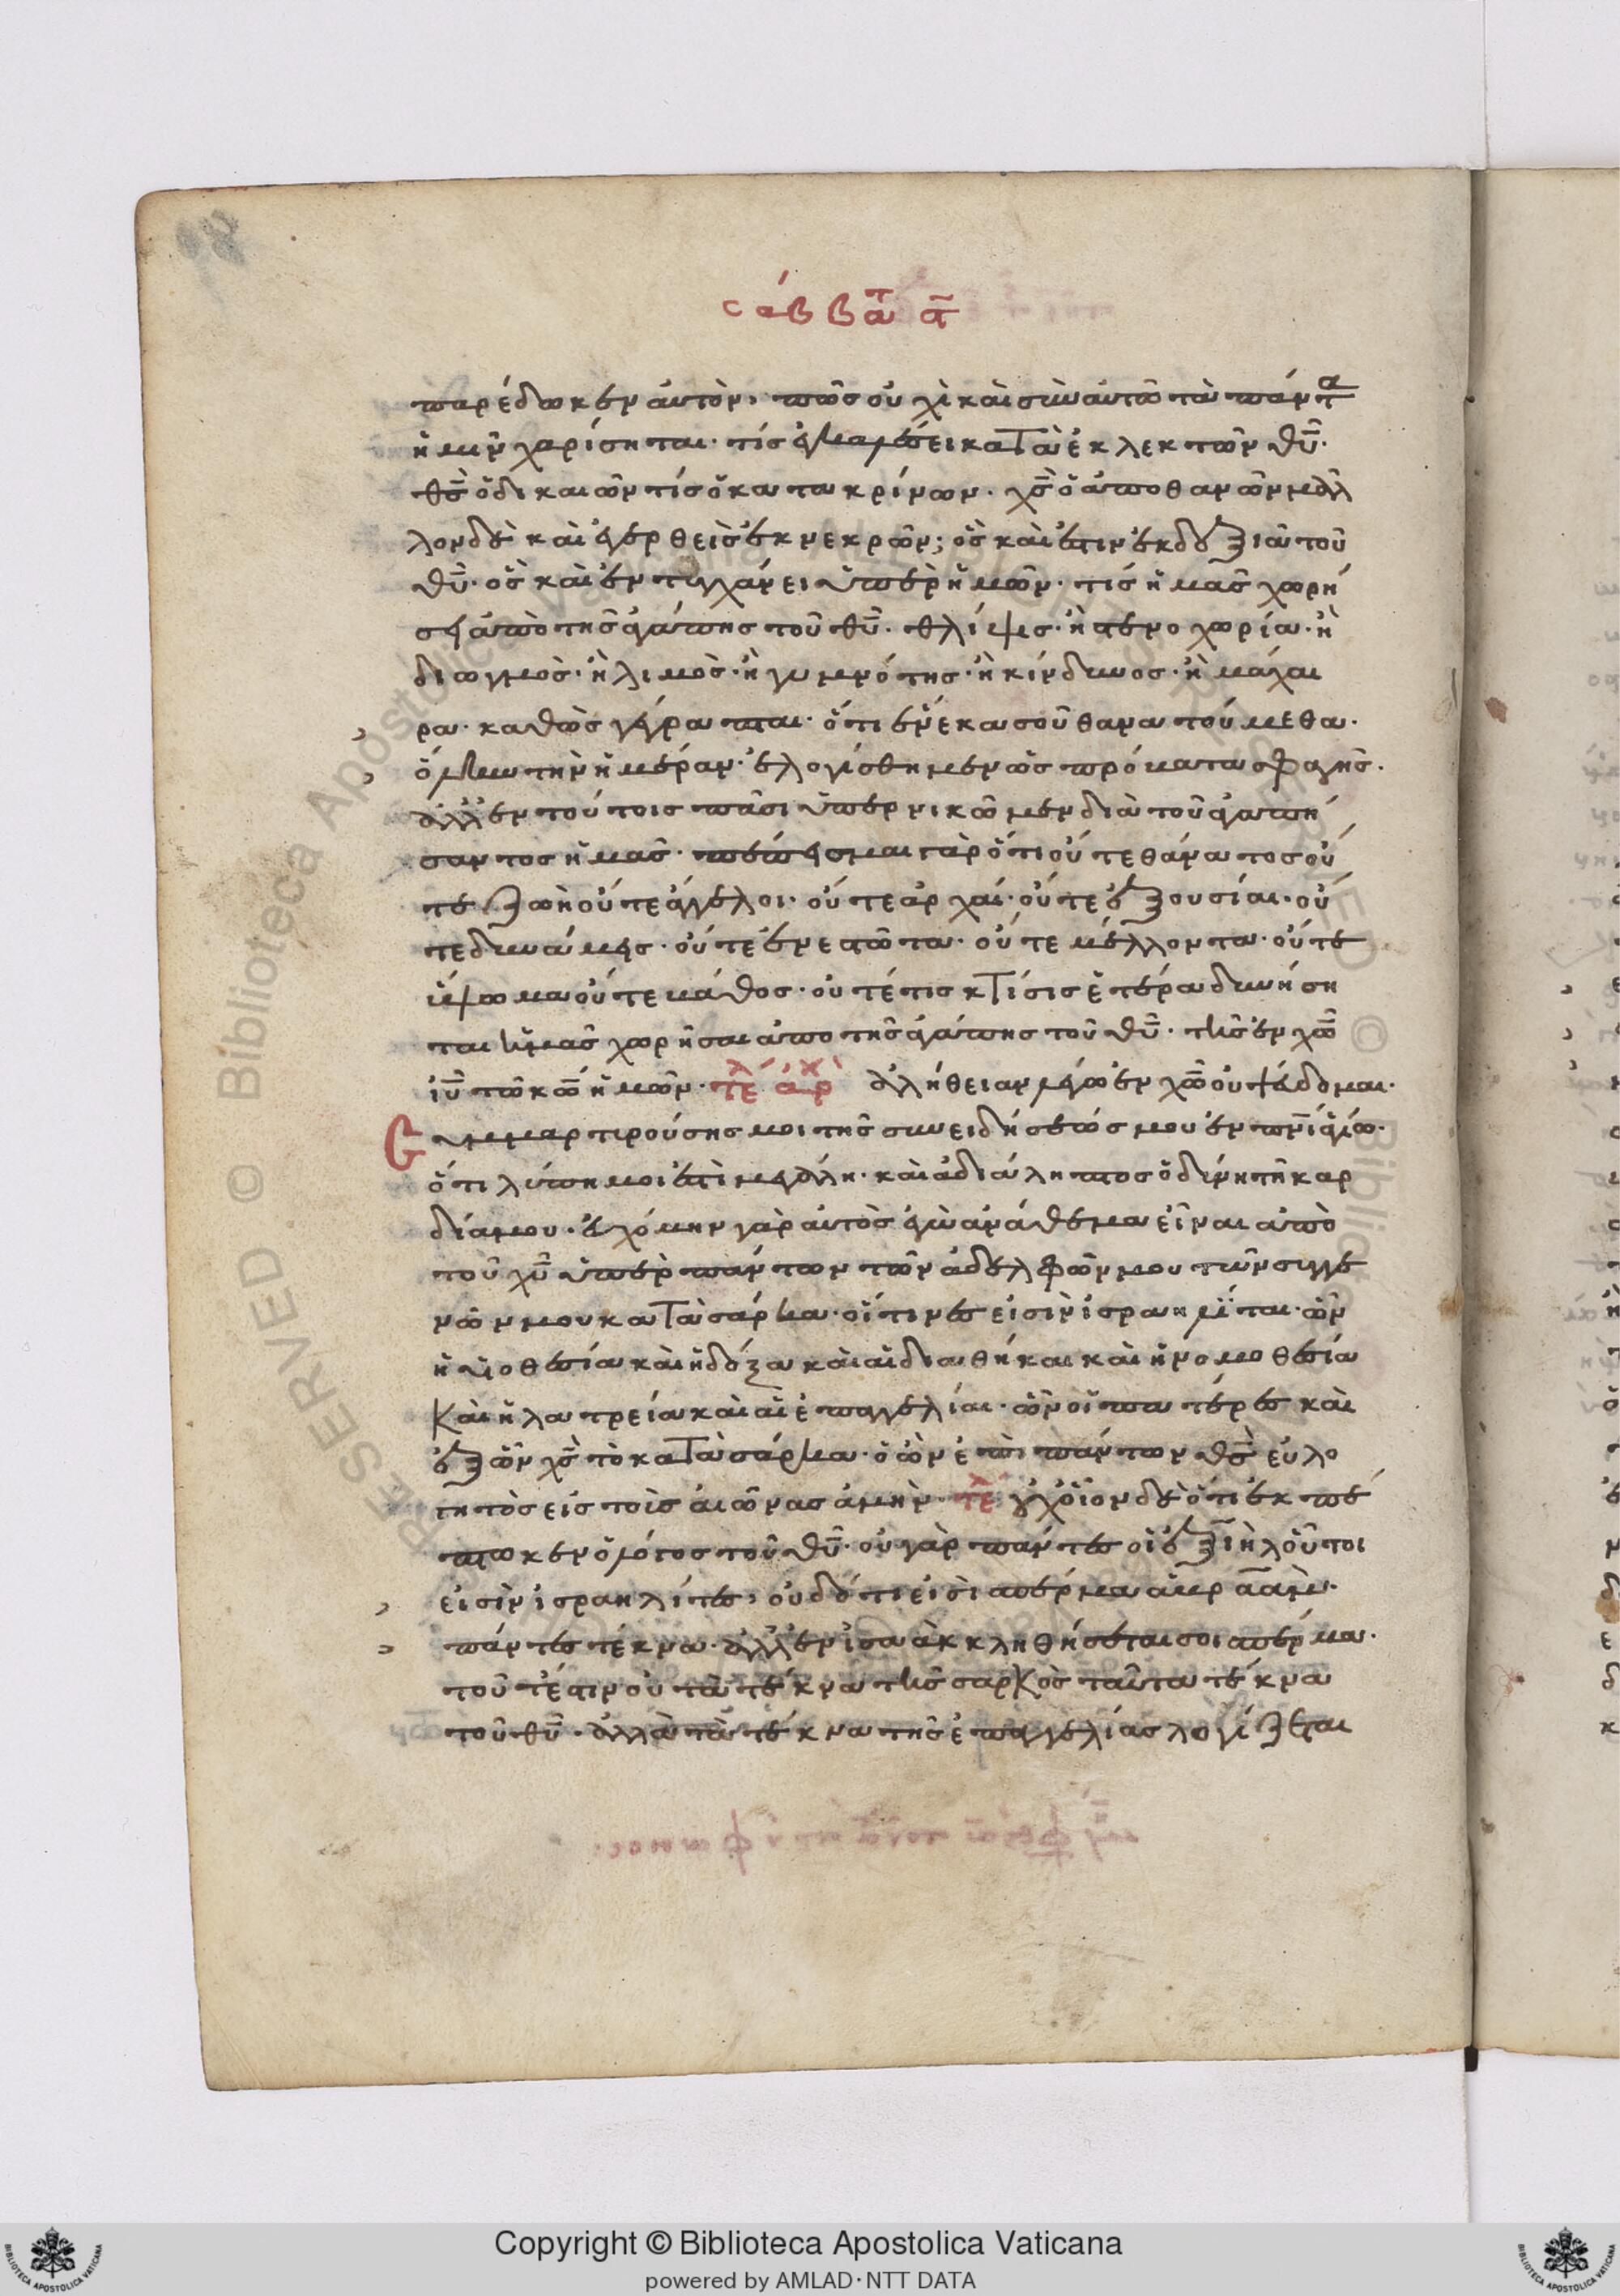 σάββατ α
παρέδωκεν αὐτὸν, πῶς οὐχὶ καὶ σὺν αὐτῶ τὰ πάντα
ἡμῖν χαρίσηται· τίς ἐγκαλέσει κατὰ ἐκλεκτῶν θῦ·
θς ὁ δικαιῶν τίς ὁ κατακρίνων· χς ὁ ἀποθανῶν μᾶλ
λον δὲ καὶ ἐγερθεὶς ἐκ νεκρῶν; ὃς καὶ ἐστιν ἐκ δεξιᾶ τοῦ
θῦ· ὃς καὶ ἐντυγχάνει ὑπὲρ ἡμῶν· τίς ἡμᾶς χωρή
σει ἀπὸ τῆς ἀγάπης τοῦ θῦ· θλίψις· ἢ στενοχωρία· ἢ
διωγμὸς· ἢ λιμὸς· ἢ γυμνότης· ἢ κίνδυνος· ἢ μάχαι
ρα· καθὼς γέγραπται· ὅτι ἕνεκα σοῦ θανατούμεθα·
ὅλην τὴν ἡμέραν· ἐλογίσθημεν ὡς πρόβατα σφαγῆς·
ἀλλ' ἐν τούτοις πᾶσι ὑπερνικῶμεν διὰ τοῦ ἀγαπή
σαντος ἡμᾶς· πέπεισμαι γὰρ ὅτι οὔτε θάνατος οὔ
τε ζωὴ οὔτε ἄγγελοι· οὔτε ἀρχαί· οὔτε ἐξουσίαι· οὔ
τε δυνάμεις· οὔτε ἐνεστῶτα· οὔτε μέλλοντα· οὔτε
ὕψωμα οὔτε βάθος· οὔτέ τις κτίσις ἑτέρα δυνήση
ται ἡμᾶς χωρῆσαι ἀπο τῆς ἀγάπης τοῦ θῦ· τῆς ἐν χῶ
ιῦ τῶ κῶ ἡμῶν· τε αρχ ἀλήθειαν λέγω ἐν χῶ οὐ ψεύδομαι·
Συμμαρτυρούσης μοι τῆς συνειδήσεώς μου ἐν πνι ἁγίω·
ὅτι λύπη μοι ἐστὶ μεγάλη· καὶ ἀδιάληπτος ὀδύνη τῆ καρ
δία μου· εὐχόμην γὰρ αὐτὸς ἐγὼ ἀνάθεμα εἶναι ἀπὸ
τοῦ χῦ ὑπὲρ πάντων τῶν ἀδελφῶν μου τῶν συγγε
νῶν μου κατὰ σάρκα· οἵτινές εἰσιν ἰσραηλῖται· ὧν
ἡ υἱοθεσία καὶ ἡ δόξα καὶ αἱ διαθήκαι καὶ ἡ νομοθεσία
καὶ ἡ λατρεία καὶ αἱ ἐπαγγελίαι· ὧν οἱ πατέρες καὶ
ἐξ ὧν χς τὸ κατὰ σάρκα· ὁ ὢν ἐπὶ πάντων θς εὐλο
γητὸς εἰς τοὺς αἰῶνας ἀμήν· τε οὐχ οἷον δὲ ὅτι ἐκπέ
πτωκεν ὁ λόγος τοῦ θῦ· οὐ γὰρ πάντες οἱ ἐξ ιηλ οὗτοι
εἰσὶν ἰσραηλίτες, οὐδ' ὅτι εἰσὶ σπέρμα ἀβραάμ·
πάντες τέκνα· ἀλλ' ἐν ἰσαὰκ κληθήσεται σοι σπέρμα·
τοῦτέστιν οὐ τὰ τέκνα τῆς σαρκὸς ταῦτα τέκνα
τοῦ θῦ· ἀλλὰ τὰ τέκνα τῆς ἐπαγγελίας λογίζεται
Copyright © Biblioteca Apostolica Vaticana
powered by AMLAD·NTT DATA